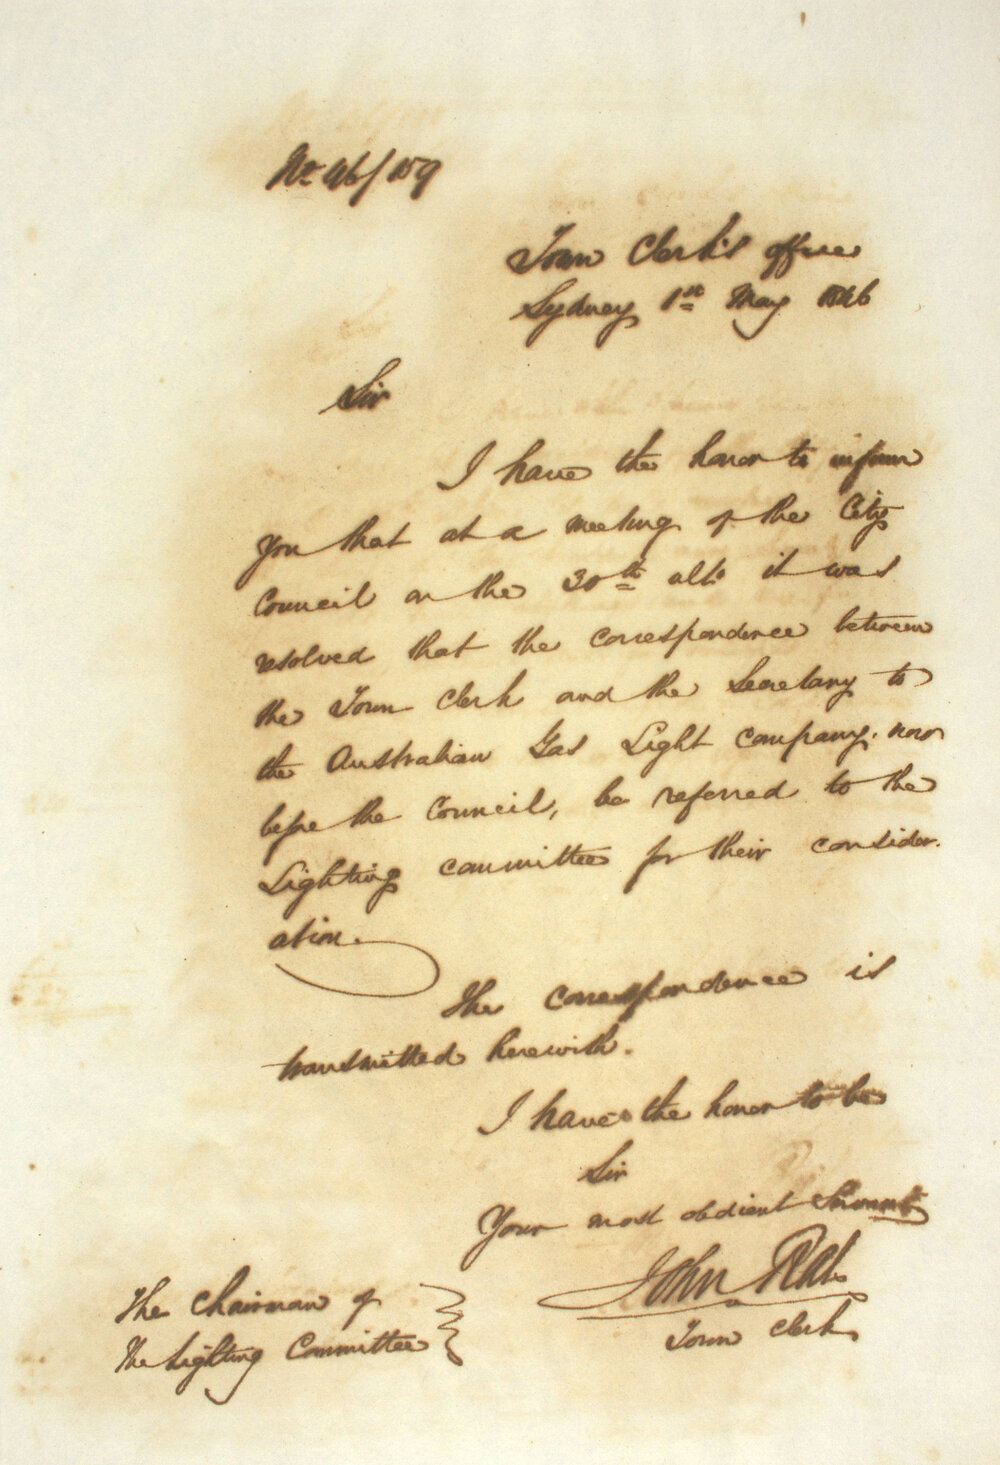 No. 46/159
Town Clerk's office
Sydney 1st May 1846
Sir
I have the honor to inform
you that at a meeting of the City
Council on the 30th ulto. it was
resolved that the correspondence between
the Town Clerk and the Secretary to
the Australian Gas Light company, now
before the Council, be referred to the
Lighting committee for their consider-
ation.
The correspondence is
transmitted herewith.
I have the honor to be
Sir
Your most obedient Servant
John
Town Clerk
The Chairman of
The Lighting Committee